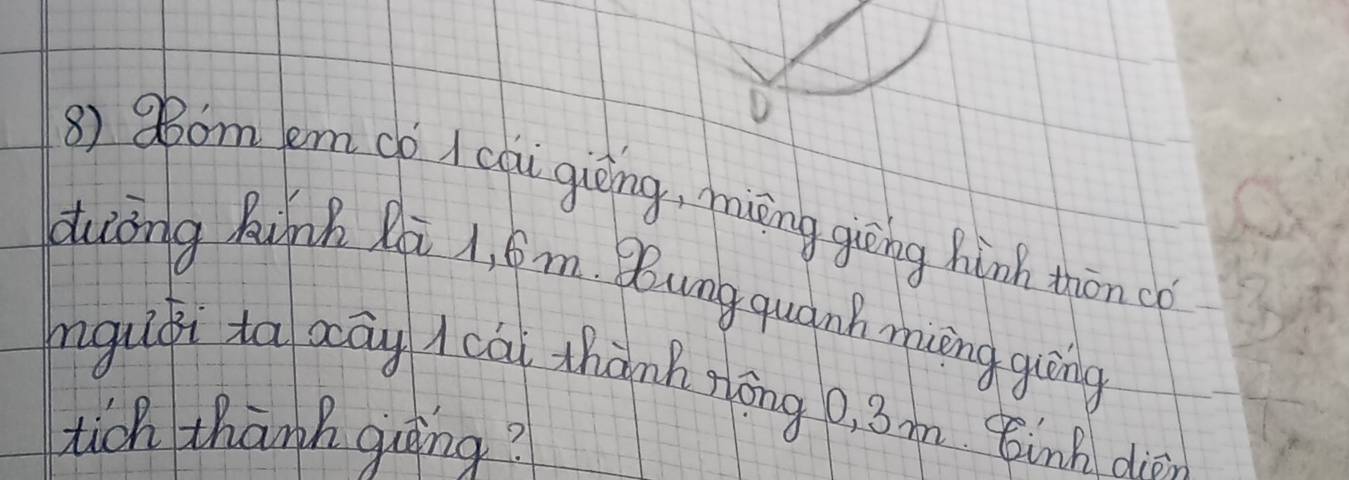 O
8) Xóm em có 1 cái giếng, miệng giếng hình tròn có
đường kính là 1,6m. Xung quanh miệng giếng
người ta xây 1 cái thành rộng 0,3m. Tính diện
tích thành giếng?